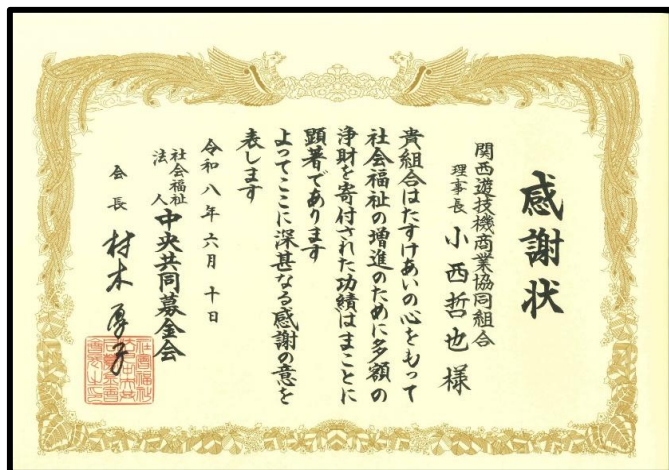 感謝状
関西遊技機商業協同組合
理事長 小西哲也様
貴組合はたすけあいの心をもって
社会福祉の増進のために多額の
浄財を寄付された功績はまことに
顕著であります
よってここに深甚なる感謝の意を
表します
令和八年六月十日
社会福祉法人 中央共同募金会
会長 村木厚子